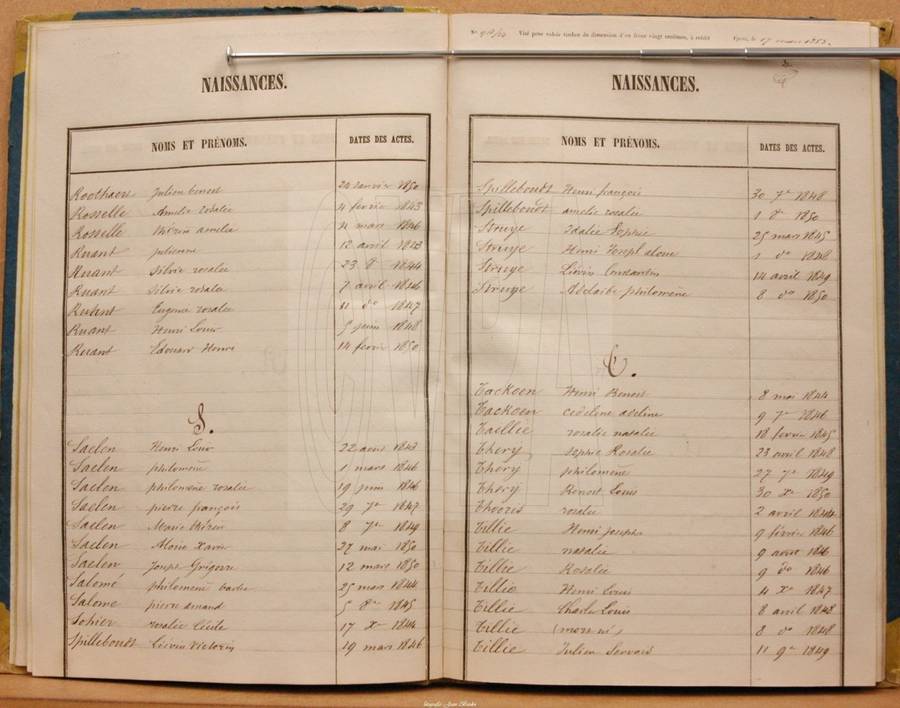 NAISSANCES.
NOMS ET PRÉNOMS. DATES DES ACTES.
Roothaer Julien benoit 24 Janvier 1850
Rosselle Amelie rosalie 4 fevrier 1843
Rosselle Thérèse amelie 4 mars 1846
Ruant julienne 12 avril 1843
Ruant Silvie rosalie 23 do 1844
Ruant Silvie rosalie 7 avril 1846
Ruant Eugenie rosalie 11 do 1847
Ruant Henri Louis 5 juin 1848
Ruant Edouard Henri 14 fevrier 1850
S.
Saelen Henri Louis 22 aout 1843
Saelen philomène 1 mars 1846
Saelen philomène rosalie 19 juin 1846
Saelen pierre françois 29 7re 1847
Saelen Marie Thérèse 8 7re 1849
Saelen Aloïse Xavier 27 mai 1850
Saelen Joseph Grégoire 12 mars 1850
Salomé philomène barbe 25 mars 1844
Salomé pierre amand 5 8re 1845
Sohier rosalie Cécile 17 Xre 1844
Spilleboudt Liévin Victorin 19 mars 1846
Visé pour valoir timbre de dimension d'un franc vingt centimes, à crédit Ypres, le 17 mars 1853.
NAISSANCES.
NOMS ET PRÉNOMS. DATES DES ACTES.
Spilleboudt Henri françois 30 7re 1848
Spilleboudt amelie rosalie 1 do 1850
Struye Idalie Sophie 25 mars 1845
Struye Henri Joseph 1 do 1848
Struye Liévin Constantin 14 avril 1849
Struye Adelaïde philomène 8 do 1850
T.
Tackoen Henri Benoit 8 mai 1844
Tackoen adeline 9 7re 1846
Taillie rosalie natalie 18 fevrier 1845
Thery Sophie Rosalie 23 avril 1848
Thery philomène 27 7re 1849
Thery Benoit Louis 30 Xre 1850
Thooris rosalie 2 avril 1844
Tillie Henri joseph 9 février 1846
Tillie natalie 9 aout 1846
Tillie Rosalie 9 do 1846
Tillie Henri Louis 4 Xre 1847
Tillie Charle Louis 8 avril 1848
Tillie (mort né) 8 do 1848
Tillie Julien Servais 11 9re 1849